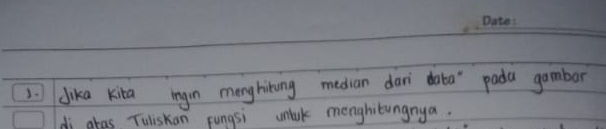 Date:
3. Jika kita ingin menghitung median dari data" pada gambar
di atas Tuliskan fungsi untuk menghitungnya.